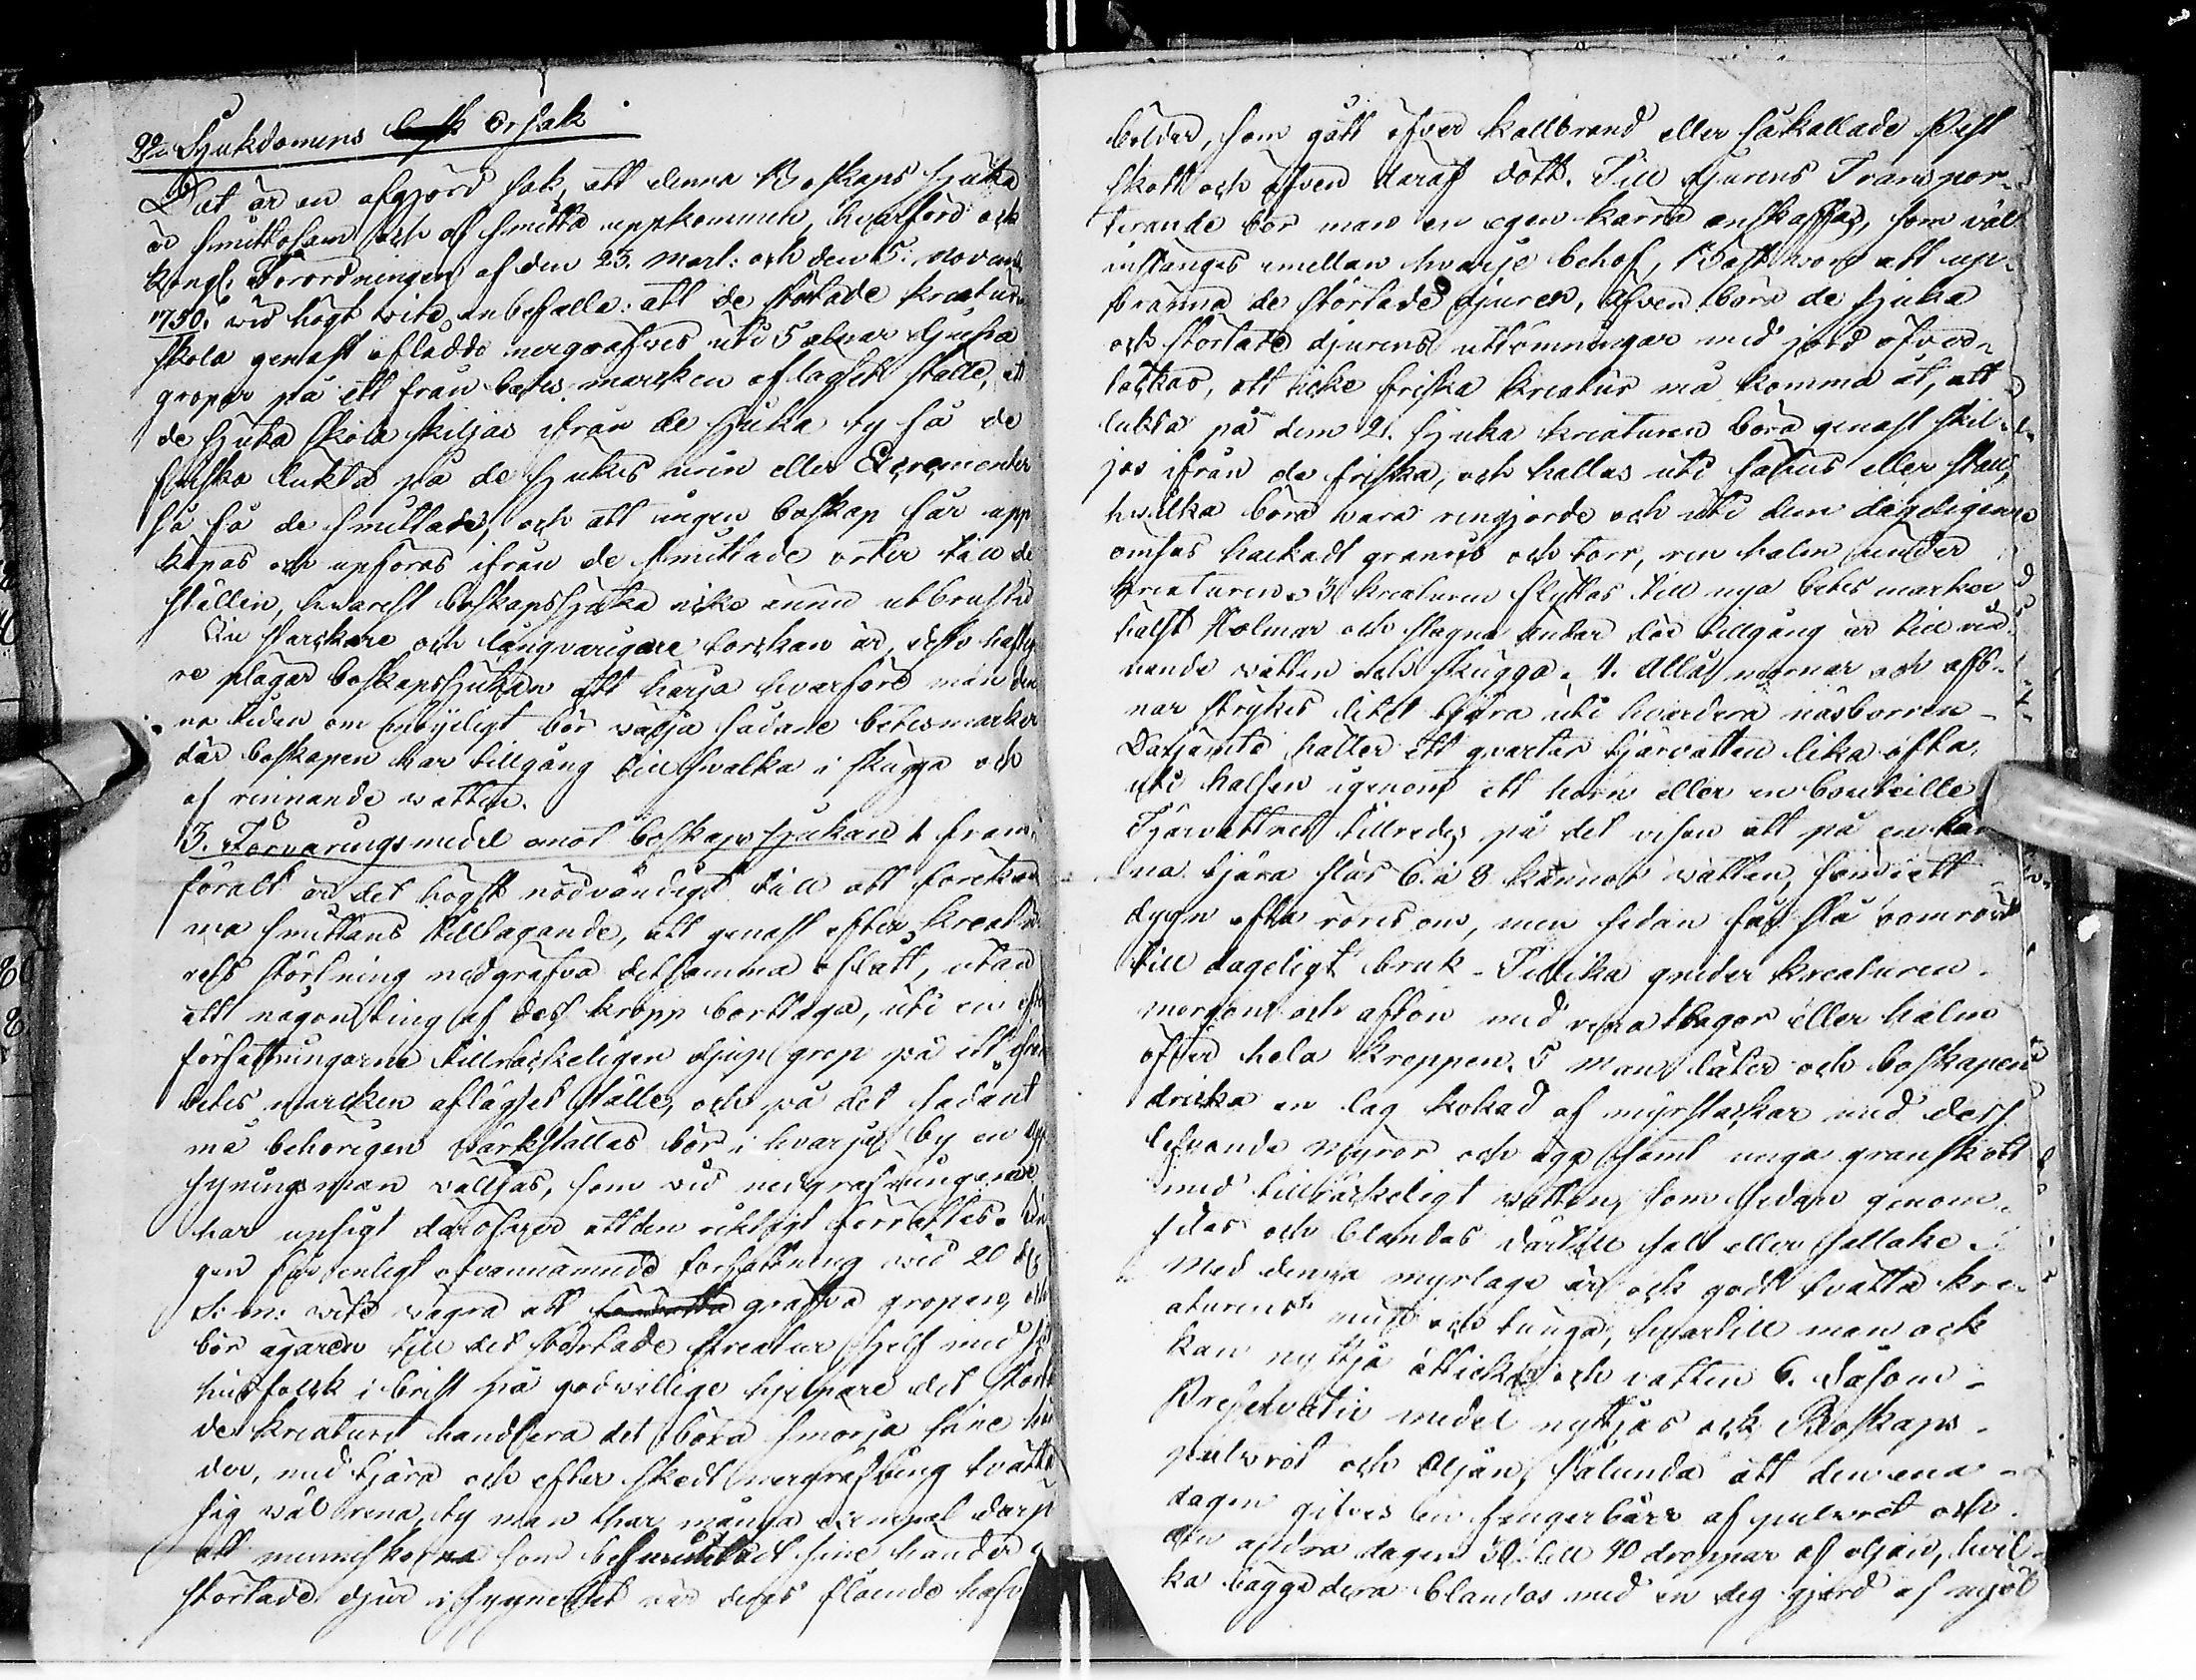 2. Sjukdomens Orsak
Det är en afgjord sak, att denna Boskaps sjuka
är smittosam och af smitta uppkommen, hvarföre ock
Kongl. Förordningen af den 23. Mart: och den 5. Novemb
1750. wid högt wite anbefalla: att de störtade kreatur
skola genast oflådde nergrafwes uti 5 alnar djupa
gropar på ett från betes marcken aflägset ställe, att
de sjuka skola skiljas ifrån de sjuka ty få de
friska lukta på de sjukes urin eller Excrementer
så få de smittade, och att ingen boskap får upp
köpas och upföras ifrån de smittade orter till de
ställen, hwarest boskapssjuka icke ännu utbrustit
Ju starckare och långvarigare torckan är, desto häftiga
re plägar boskapssjukan att härja hvarföre man den
na tiden om möjeligt bör wälja sådane betesmarker
där boskapen har tillgång till swalka i skugga och
af rinnande watten.
3. Förvaringsmedel emot boskaps sjukan 1 fram
förallt är det högst nödvändigt till att förekom
ma smittans tilltagande, att genast efter kreatu
rets störtning nedgrafva detsamma oflått, utan
att någonting af dess kropp borttaga, uti en efter
författningarne tillräckeligen djup grop på ett ifrån
betes marcken aflägset ställe, och på det sådant
må behörigen värkställas bör i hvarje by en upp
syningsman wälljas, som wid nedgrafningarne
har upsigt däröfver att den riktigt förrättas. In
gen får enligt ofvannämnde författning wid 20 d
S: m: wite wägra att grafva gropen, och
bör ägaren till det störtade kreatur sjelf med sitt
husfolck i brist på godwillige hjelpare det störta
de kreaturet handtera det böra smörja sine hän
der, med tjära och efter skedt nergrafning twätta
sig wäl rena, ty man har många exempel därpå
att menniskorna som besmittadt sine händer
störtade djur i synnerhet wid deras flående hafva
bölder, som gått öfver kallbrand eller såkallade Pest
skott och äfven däraf dött. Till djurens Transpor-
terande bör man en egen kärra anskaffas, som väl
instänges emellan hvarje behof, Bäst wore att up-
bränna de störtade djuren, Äfven böra de sjuka
och störtade djurens uttömningar med jord öfver-
täckas, att icke friska kreatur må komma åt, att
lukta på dem 2. sjuka kreaturen böra genast skil-
jas ifrån de friska, och hållas uti fähus eller stall,
hwilka böra wara rengjorde och uti dem dageligen
ömsas hackadt granris och torr, ren halm under
kreaturen. 3 kreaturen flyttas till nya betes marker
hälst Holmar och slagna ändar där tillgång är till rin
nande watten och skugga. 4. Alla mornar och aft-
nar strykes litet tjära uti hvardera näsborren
Därjämte häller ett qvarter tjärvatten lika ofta
uti halsen igenom ett horn eller en bouteille
Tjärvattnet tillredes på det visen att på en kan
na tjära slås 6. à 8 kannor watten, som i ett
dygn ofta röres om, men sedan får stå orördt
till dageligt bruk. Tillika gnides kreaturen
morgon och afton med rena tagor eller halm
öfver hela kroppen. 5 Man låter och boskapen
dricka en lag kokad af myrstackar med dess
lefvande myror och ägg samt unga granskott
med tillräckeligt watten, som sedan genom
silas och blandas därtill salt eller saltlake
Med denna myrlage är och godt twätta kre-
aturens mule och tunga, hvartill man ock
kan nyttja ätticka och vatten 6. Såsom
Preservativ medel nyttjas och Boskaps
pulvret och Oljan, sålunda att den ena
dagen gifves en fingerbörr af pulvret och
den andra dagen 30 till 40 droppar af oljan, hvil-
ka bägge dera blandas med en deg gjord af mjöl